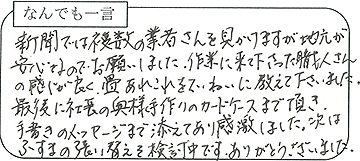 なんでも一言
新聞では複数の業者さんを見かけますが地元が
安心なのでお願いしました。作業に来て下さった職人さん
の感じが良く、畳あれこれをていねいに教えて下さいました。
最後に社長の奥様手作りのカードケースまで頂き、
手書きのメッセージまで添えてあり感激しました。次は
ふすまの張り替えを検討中です。ありがとうございました。